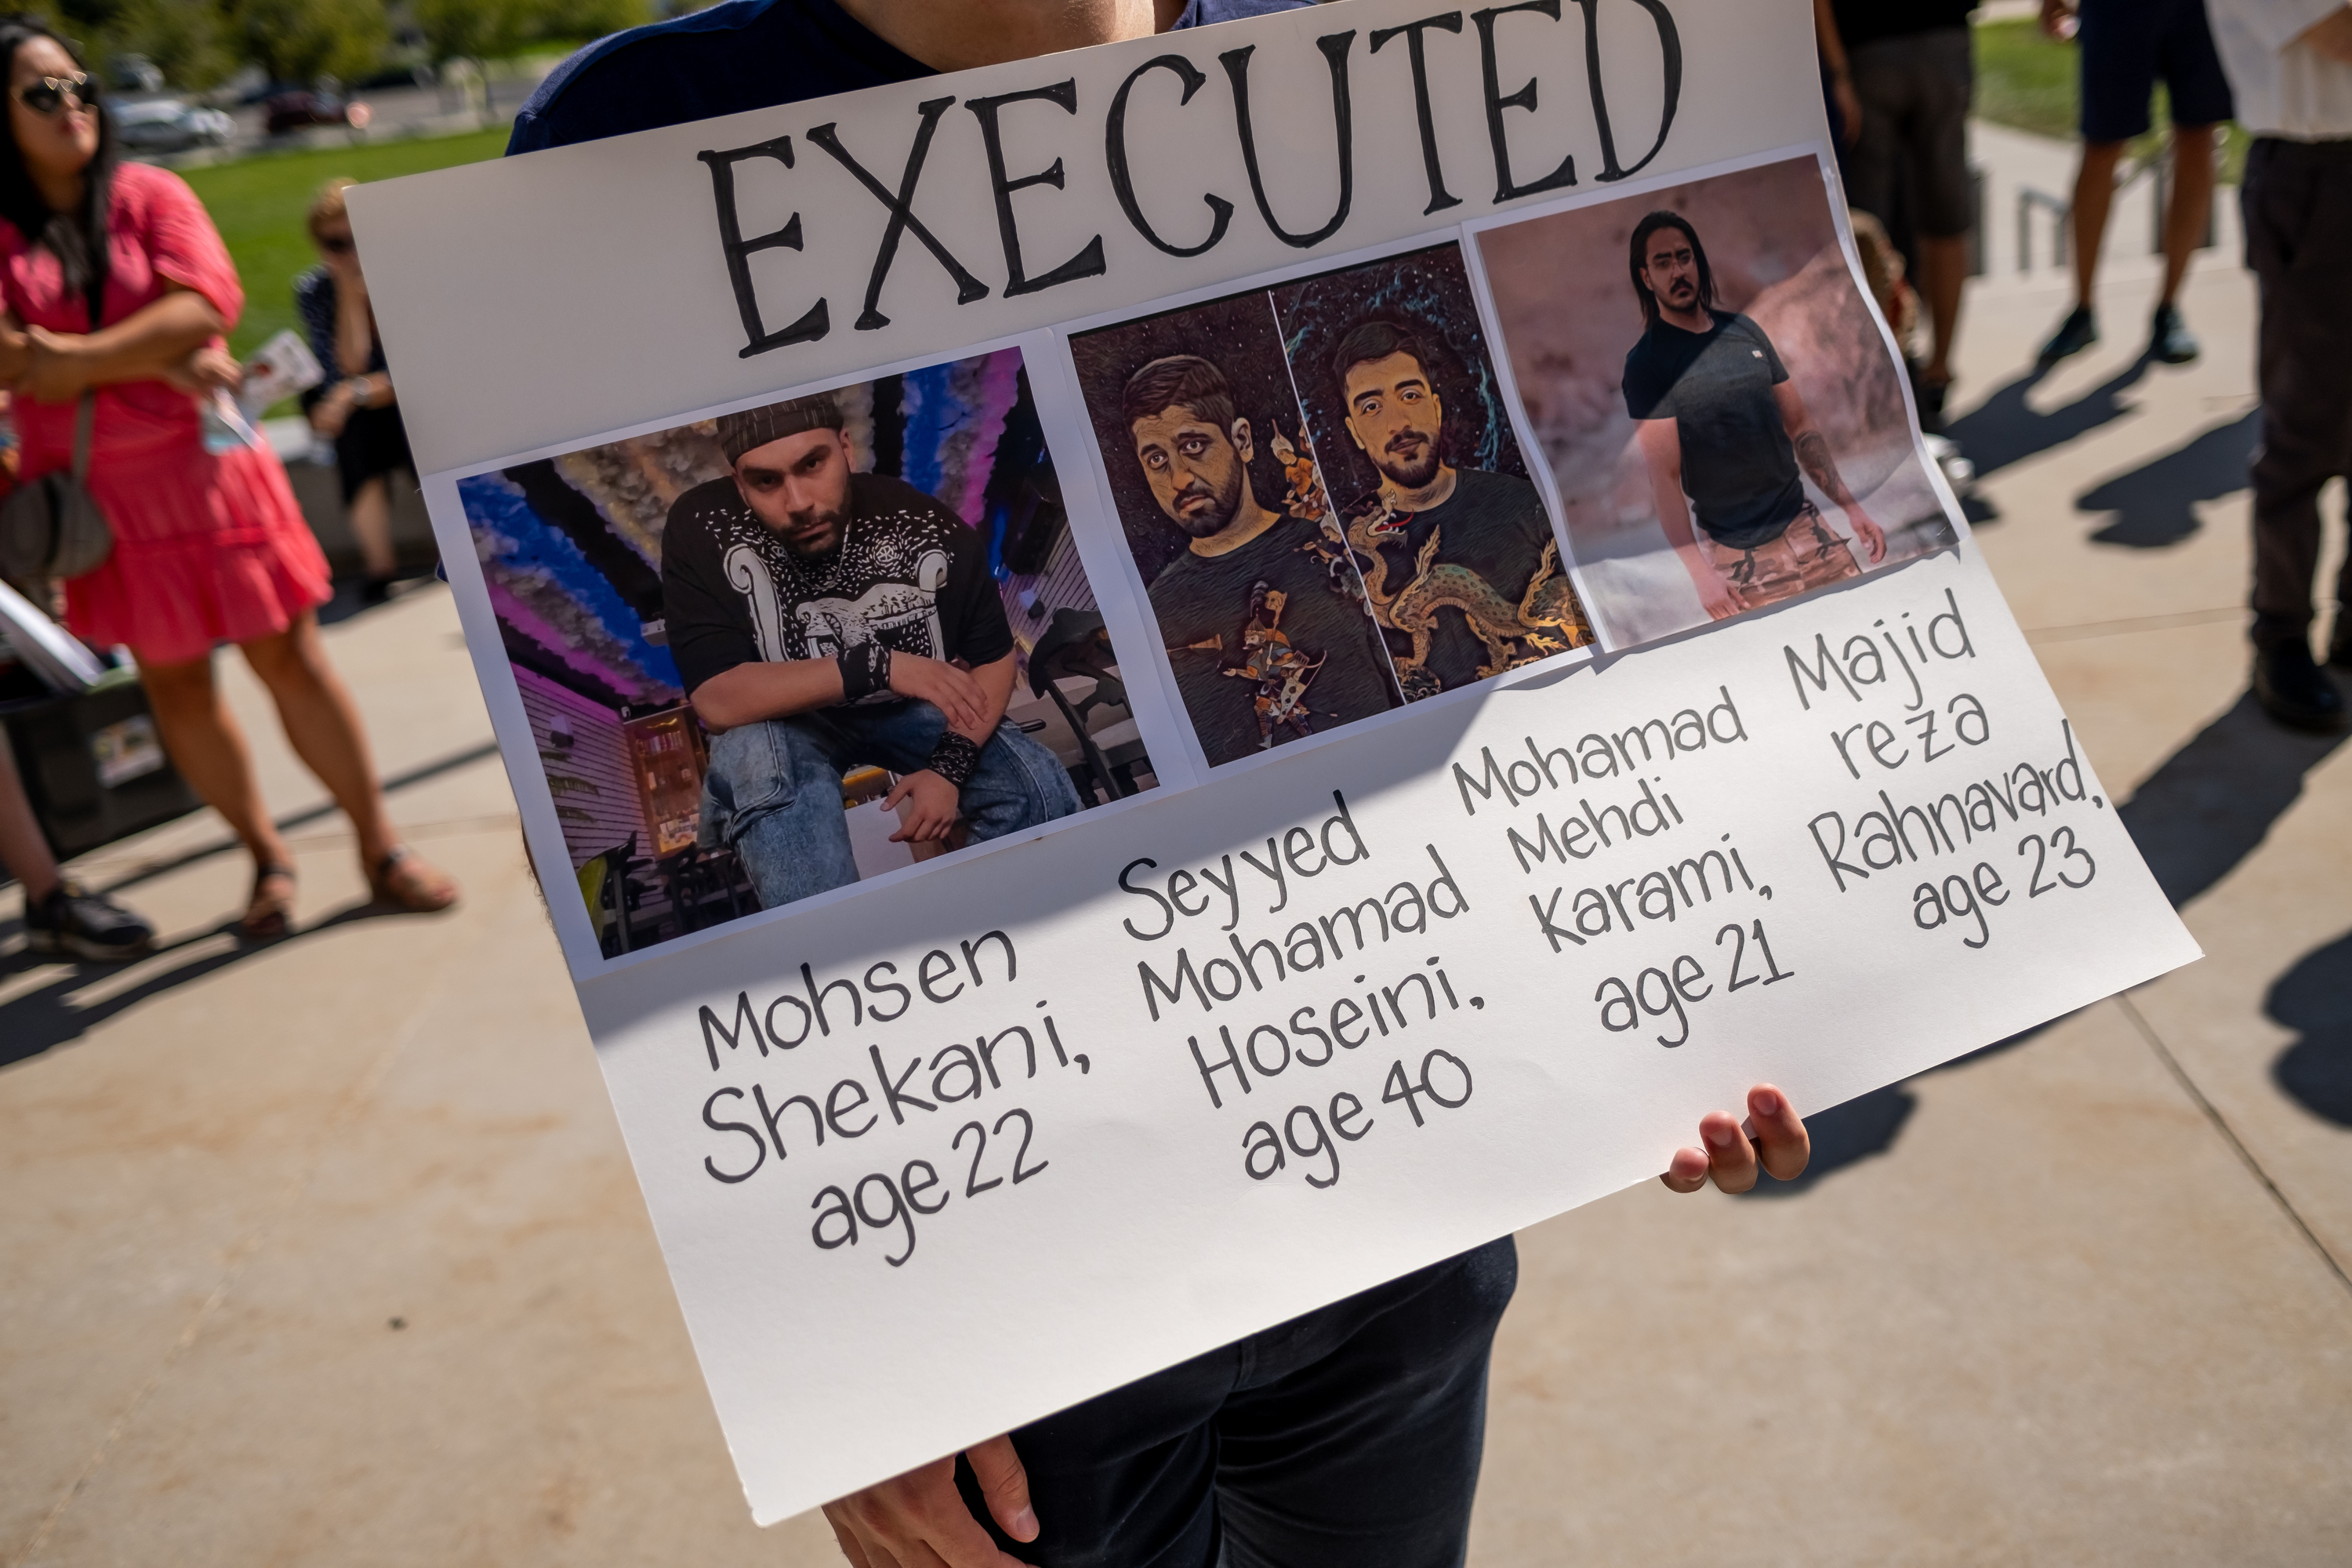 EXECUTED
Mohsen
Shekani,
age 22
Seyyed
Mohamad
Hoseini,
age 40
Mohamad
Mehdi
Karami,
age 21
Majid
reza
Rahnavard,
age 23